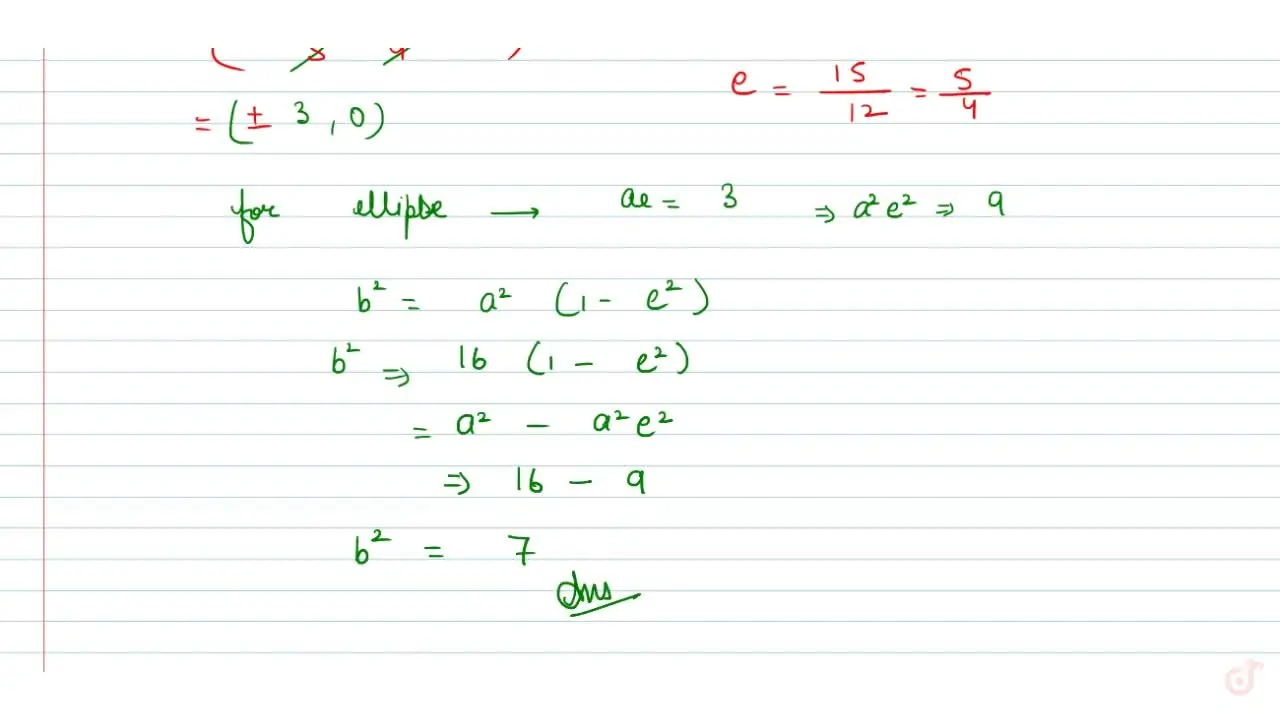 e = 15/12 = 5/4
= (± 3, 0)
for ellipse → ae = 3 ⇒ a²e² ⇒ 9
b² = a² (1 - e²)
b² ⇒ 16 (1 - e²)
= a² - a²e²
⇒ 16 - 9
b² = 7
Ans